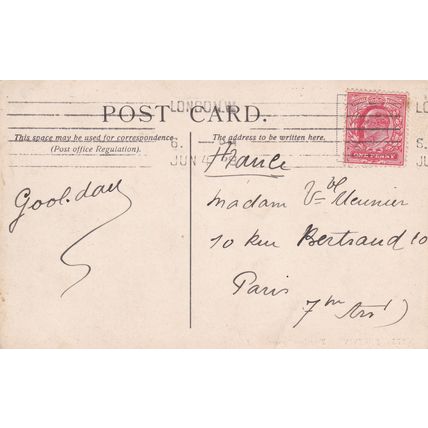 POST CARD.
LONDON.W.
This space may be used for correspondence
(Post office Regulation).
The address to be written here.
JUN 4
ONE PENNY
France
Gool.day
Madam Vve Meunier
10 Rue Bertrand 10
Paris
7me Arst)